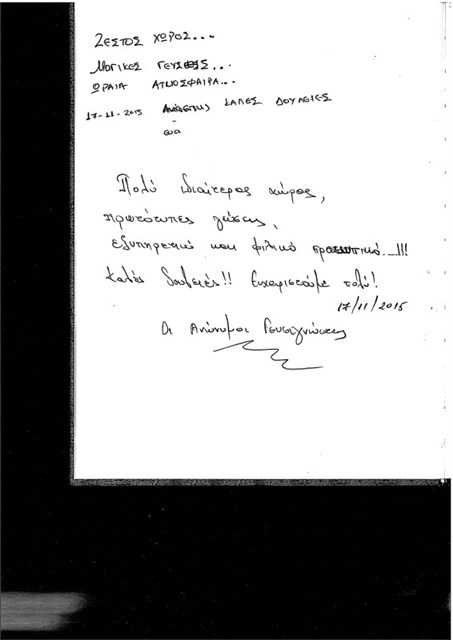 ΖΕΣΤΟΣ ΧΩΡΟΣ...
ΜΑΓΙΚΕΣ ΓΕΥΣΕΙΣ...
ΩΡΑΙΑ ΑΤΜΟΣΦΑΙΡΑ...
17-11-2015 ΚΑΛΕΣ ΔΟΥΛΕΙΕΣ
Πολύ ιδιαίτερος χώρος,
πρωτότυπες γεύσεις,
εξυπηρετικό και φιλικό προσωπικό...!!!
Καλές δουλειές!! Ευχαριστούμε πολύ!
17/11/2015
Οι Ανώνυμοι Γευσιγνώστες